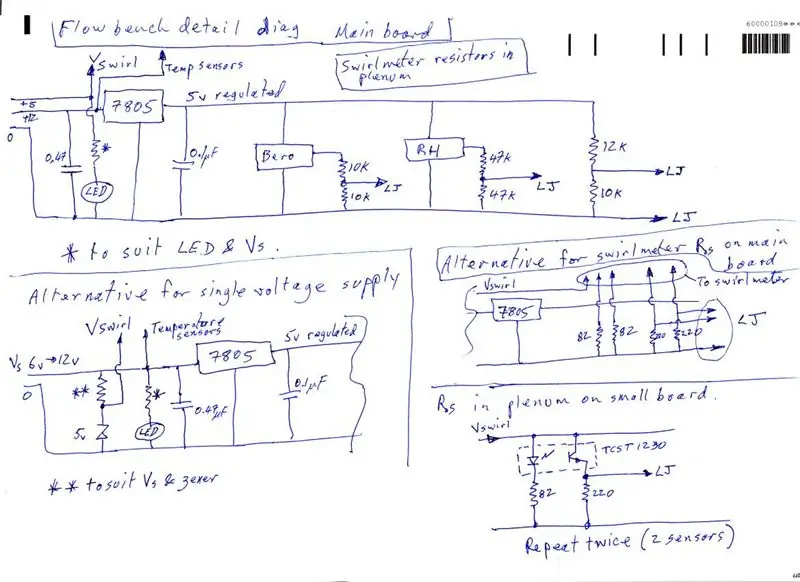 Flow bench detail diag Main board
60000109
Swirlmeter resistors in
plenum
Vswirl
Temp sensors
+5
+12
0
7805
5v regulated
0.47
*
LED
0.1µF
Bero
10K
10K
LJ
RH
47K
47K
LJ
12K
10K
LJ
LJ
* to suit LED & Vs.
Alternative for single voltage supply
Vswirl
Temperature
sensors
5v regulated
7805
Vs 6v→12v
0
**
*
5v
LED
0.47µF
0.1µF
** to suit Vs & zener
Alternative for swirlmeter Rs on main
board
Vswirl
To swirlmeter
7805
82
82
220
220
LJ
Rs in plenum on small board.
Vswirl
TCST1230
LJ
82
220
Repeat twice (2 sensors)